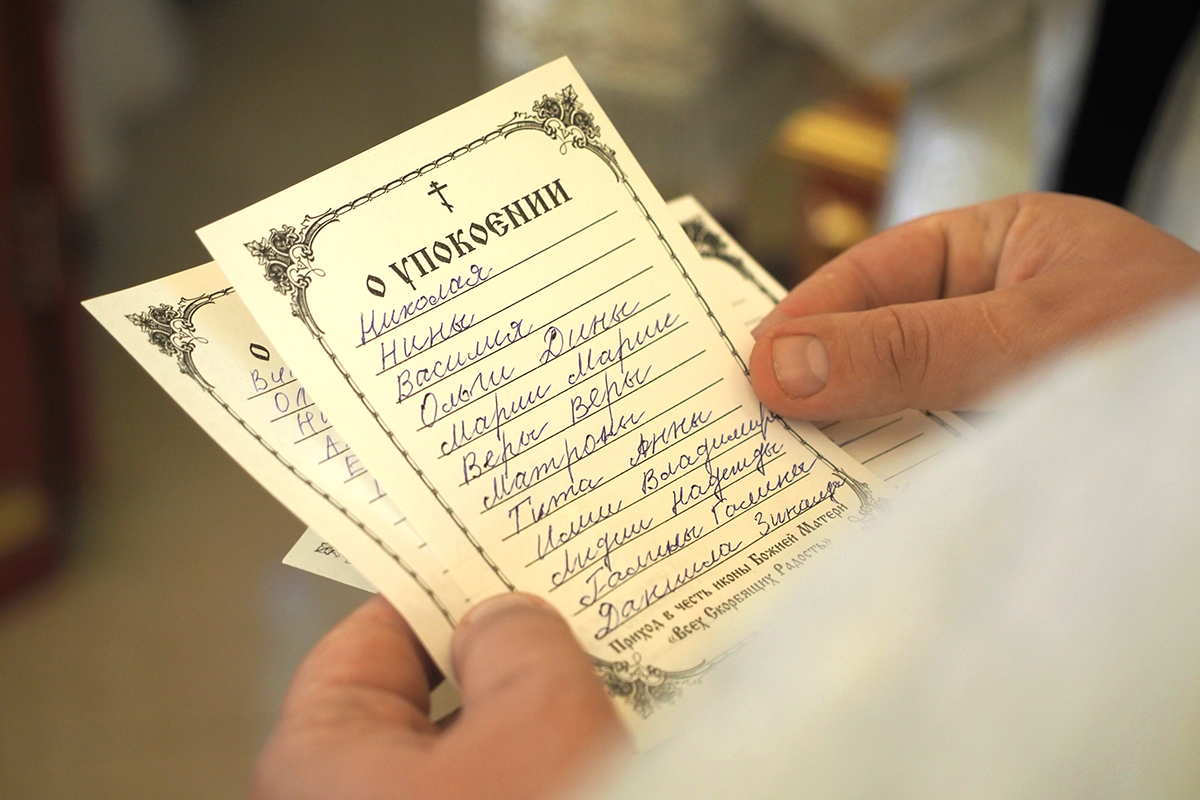 О УПОКОЕНИИ
Николая
Нины
Василия
Ольги Дины
Марии Марии
Веры Веры
Матроны
Тита Анны
Илии Владимира
Лидии Надежды
Галины Галины
Даниила
Приход в честь иконы Божией Матери
«Всех Скорбящих Радость»
О